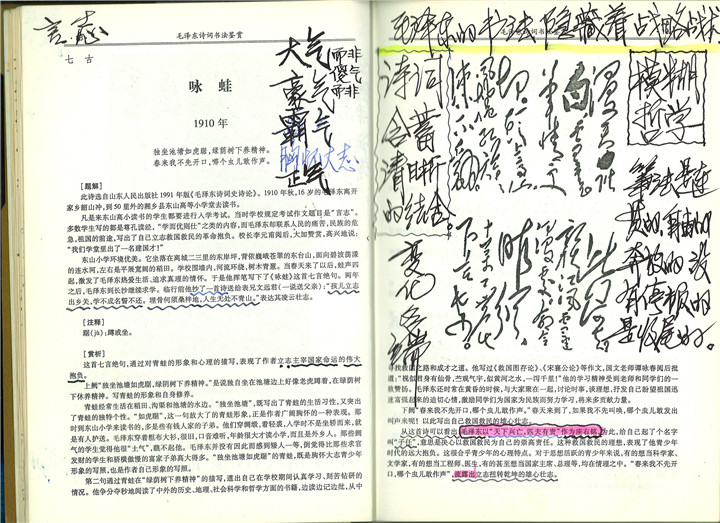 言志
毛泽东诗词书法鉴赏
七 古
大气
豪气
霸气
正气
胸怀大志
咏 蛙
1910 年
独坐池塘如虎踞,绿荫树下养精神。
春来我不先开口,哪个虫儿敢作声。
[题解]
此诗选自山东人民出版社 1991 年版《毛泽东诗词史诗论》。1910 年秋,16 岁的毛泽东离开
家乡韶山冲,到 50 里外的湘乡县东山高等小学堂去读书。
凡是来东山高小读书的学生都要进行入学考试。当时学校规定考试作文题目是“言志”。
多数学生写的都是尊孔读经,“学而优则仕”之类的内容,而毛泽东却联系人民的痛苦,民族的危
急,祖国的前途,写出了自己立志救国救民的革命抱负。校长李元甫阅后,大加赞赏,高兴地说:
“我们学堂里出了一名建国才!”
东山小学环境优美。它坐落在离城二三里的东岸坪,背依巍峨苍翠的东台山,面向碧波荡漾
的涟水河,左右是平展宽阔的稻田。学校围墙内,河流环绕,树木青葱。当春天来了以后,蛙声四
起,激发了毛泽东热爱生活、追求真理的情怀。于是他挥笔写下了《咏蛙》这首七言绝句。两年
之后,毛泽东到长沙继续求学。临行前他抄了一首诗送给表兄文运君(一说送父亲):“孩儿立志
出乡关,学不成名誓不还。埋骨何须桑梓地,人生无处不青山。”表达其凌云壮志。
[注释]
踞(jù):蹲或坐。
[赏析]
这首七言绝句,通过对青蛙的形象和心理的描写,表现了作者立志主宰国家命运的伟大
抱负。
上阕“独坐池塘如虎踞,绿荫树下养精神。”是说独自坐在池塘边上好像老虎蹲着,在绿荫树
下休养精神。写青蛙的形象和自身修养。
青蛙经常生活在稻田、沟渠和池塘的水边。“独坐池塘”,既写出了青蛙的生活习性,又突出
了青蛙的独特个性。“如虎踞”,这一句放大了的青蛙形象,正是作者广阔胸怀的一种表现。那
时到东山小学来读书的,多是些有钱人家的子弟。他们穿绸缎,着轻裘,入学时不是坐轿而来,就
是有人护送。毛泽东穿着粗布大衫,很旧,口音难听,年龄很大才读小学,而且是外乡人。那些阔
气的学生觉得他很“土气”,瞧不起他。毛泽东并没有因此而感到矮人一等,倒觉得比那些求官
发财的学生和轿骥傲慢的富家子弟高大得多。“独坐池塘如虎踞”的青蛙,既是胸怀大志青少年
形象的写照,也是作者自己形象的写照。
第二句通过青蛙在“绿荫树下养精神”的描写,道出自己在学校期间认真学习、刻苦钻研的
情况。他争分夺秒地阅读了中外的历史、地理、社会科学和哲学方面的书籍,边读边记边批,从中
毛泽东的书法隐藏着战略战术
毛泽东诗词书法鉴赏
诗词含蓄
清晰的结合。
模糊
哲学
笔法是连
贯的,自由的
奔放的,没
有停顿的
是收尾的。
变化多端
寻找救国之路和成才之道。他写过《救国图存论》、《宋襄公论》等作文,国文老师谭咏春阅后批
道:“视似君身有仙骨,寰观气宇,似黄河之水,一泻千里!”他的学习精神受到老师和同学们的一
致赞扬。毛泽东还时常在黄昏的时候,与大家聚在一起,讨论时事,谈理想,抒发自己盼望祖国迅
速富强起来的迫切心情,激励同学们为国家为民族而努力学习,将来多贡献力量。
下阕“春来我不先开口,哪个虫儿敢作声。”春天来到了,如果我不先叫唤,哪个虫儿敢发出
叫声来呢!以此写出自己救国救民的雄心壮志。
从这首诗可以看出,毛泽东以“天下兴亡,匹夫有责”作为座右铭,为此,给自己起了个名字
叫“子任”,意思是决心以救国救民为自己的崇高责任。这种救国救民的理想,表现了他青少年
时代的远大抱负。这很合乎青少年的心理特点。对于思想活跃的青少年来说,有的想当科学家、
文学家,有的想当工程师、医生,有的甚至想当国家主席、总理等,均在情理之中。“春来我不先开
口,哪个虫儿敢作声”,流露出立志扭转乾坤的雄心壮志。